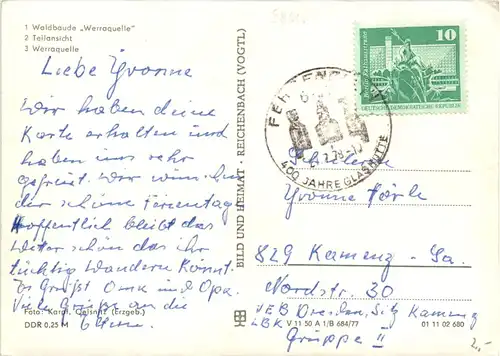 1 Waldbaude „Werraquelle"
2 Teilansicht
3 Werraquelle
Liebe Yvonne
Wir haben deine
Karte erhalten und
haben uns sehr
gefreut. Wir wünschen
dir schöne Ferientage
Hoffentlich bleibt das
Wetter schön das ihr
tüchtig Wandern könnt.
Es Grüßt Oma und Opa.
Viele Grüße an die
Eltern.
Foto: Karpf, Oelsnitz (Erzgeb.)
DDR 0,25 M
BILD UND HEIMAT · REICHENBACH (VOGTL)
V 11 50 A 1/B 684/77
01 11 02 680
10
DEUTSCHE DEMOKRATISCHE REPUBLIK
400 JAHRE GLASHÜTTE
Schülerin
Yvonne
829 Kamenz - Sa.
Nordstr. 30
VEB Dresden, Sitz Kamenz
LBK
Gruppe II
2,-